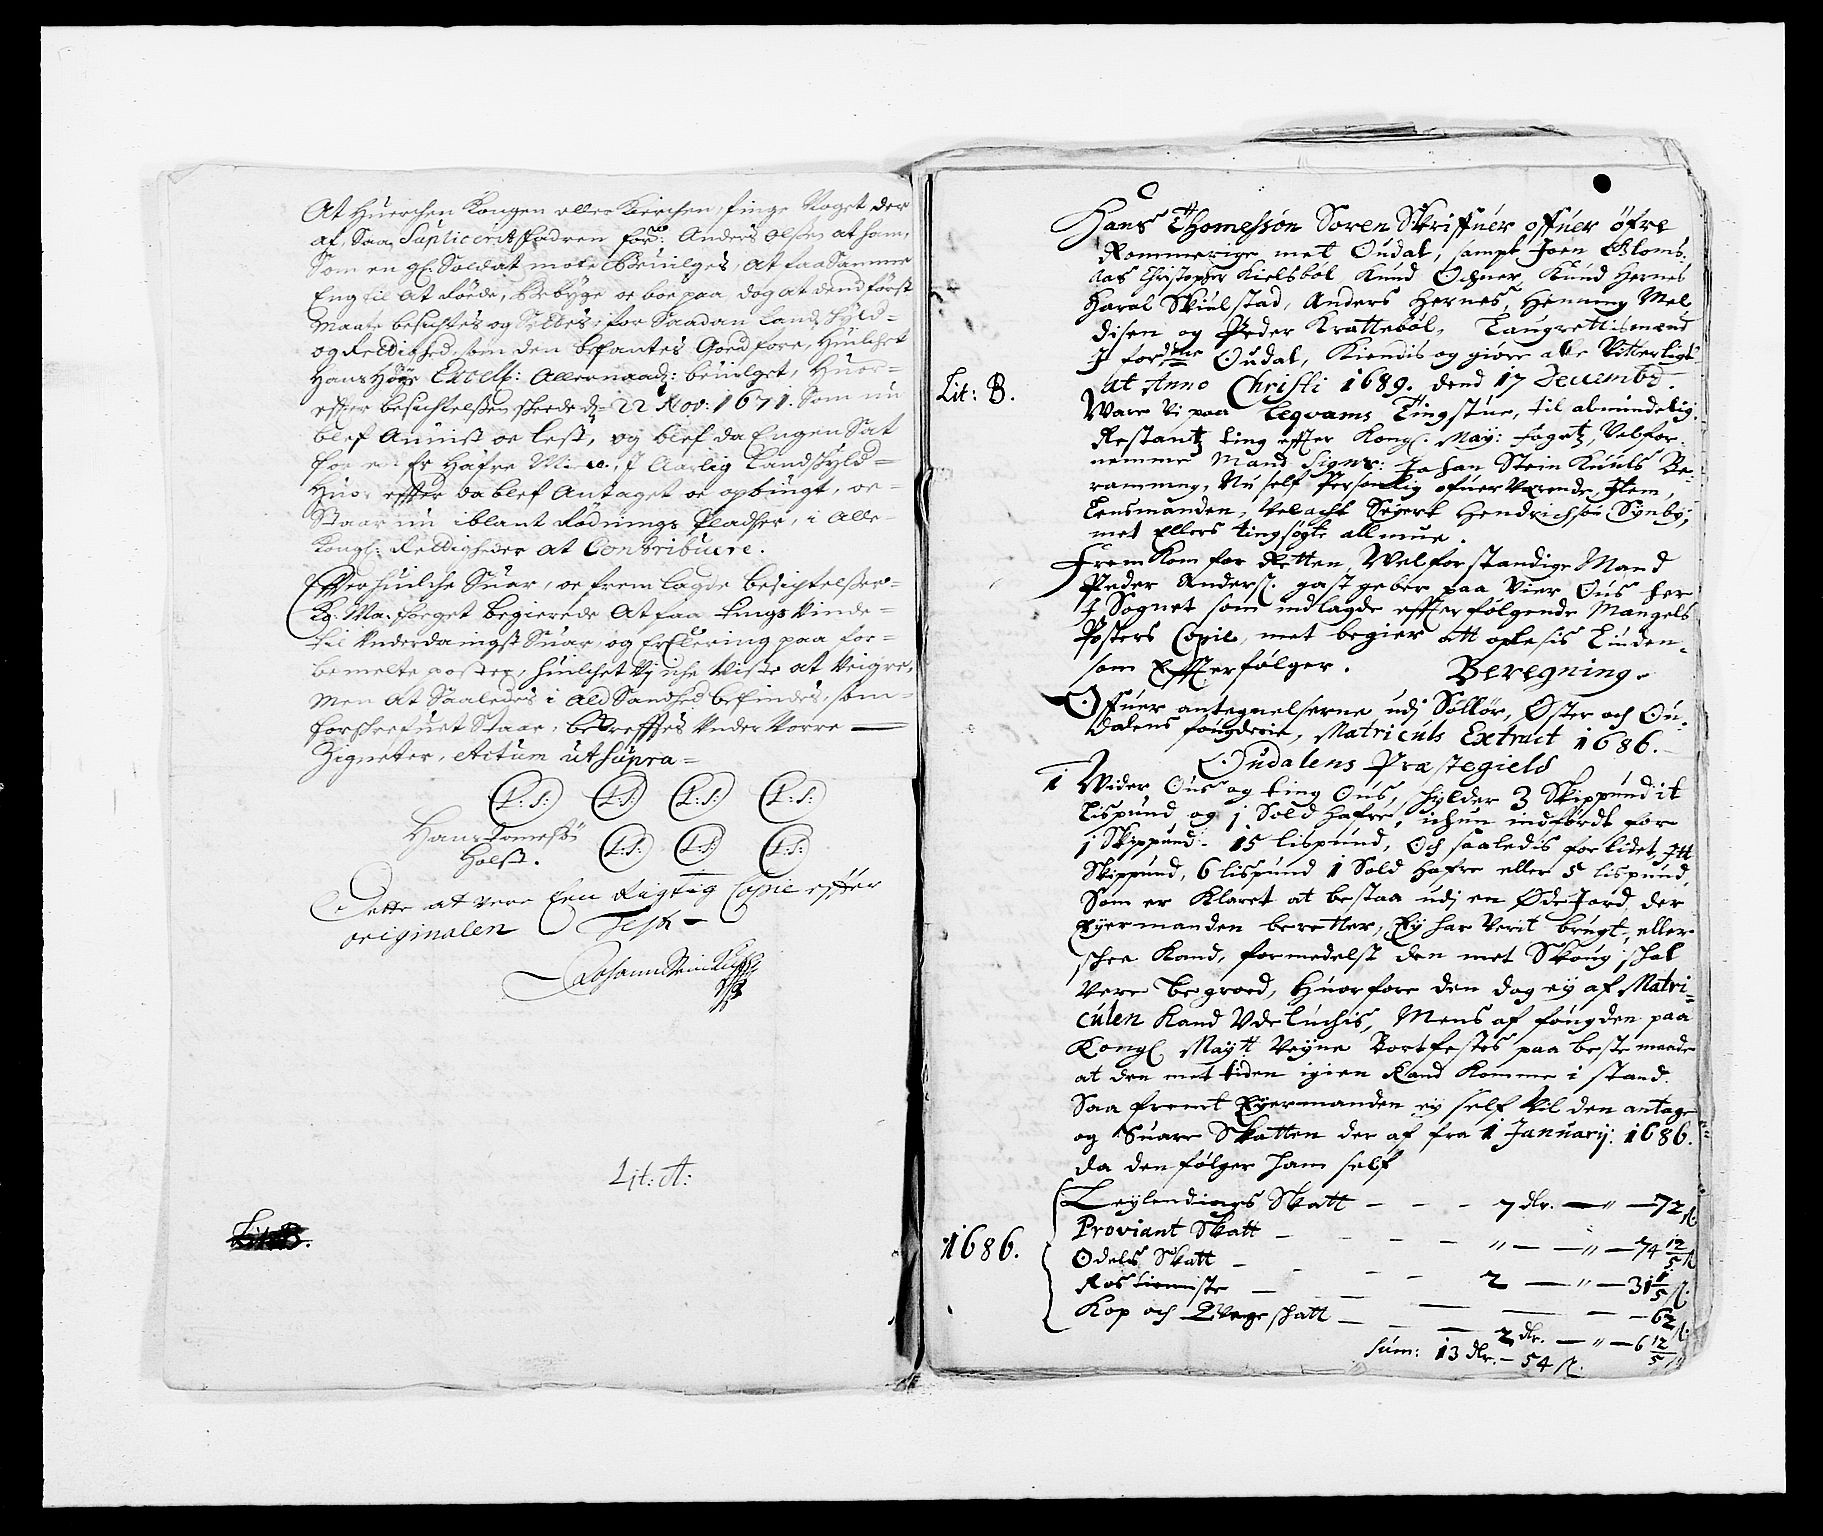 At Huerchen Kongen eller Kierchen, finge Noget der
af, Saa Suplicerit Fadren for: Anders Olsen at ham,
Som en gl: Soldat motte Beuilges, at faa Samme
Eng til At Røede, Bebyge oc boe paa dog at dend først
Maatte besichtes og for Saadan Land Skyld=
og Rettighed, som den befantes Goed fore, Huilchet
Hans Høye Excell: Allernaad: beuilget, Huor=
effter besichtelßen skeede d= 22 Nov: 1671. Som nu
blef Anuist oc lest, og blef da Engen Sat
for Hafre J Aarlig Landskyld=
Huor effter da blef Antaget oc opbrugt, oc=
Staar nu iblant Rødnings Pladßer, i Alle=
Kongl: Rettigheder at Contribuere.
Effter huilche Suar, oc frem lagde besichtelßer=
Kg. Ma. foeget begierede At faa tings Vinde=
til Vnderdanigst Suar og Erklering paa for=
bemelte poster, huilchet Vj iche Viste at Veigre,
Men At Saaledes i Ald Sandhed befindes, som=
forschrefuet Staar, bekrefftes Vnder Vorre
Zigneter, Actum ut Supra=
L: S: L: S: L: S: L: S:
Hans Tomeßøn L: S: L: S: L: S:
Holst.
Dette at vere Een Rigtig Copie effter
originalen Test=
Lit: A:
Lit: B.
Hans Thomeßøn Soren Skriffuer offuer öfre
Rommerige met Oudal, sampt Joen Gloms=
aas Christopher Kielsböl Knud Ochner, Knud Hernes
Haral Skiulstad, Anders Hernes, Henning Mel
disen og Peder Kratteböl, Laugrettismænd
J fordne Oudal, Kiendis og giøre alle Vitterligt
Lit: B. at Anno Christi 1689. dend 17 Decembr.
Ware Vi paa Leqvams Tingstue, til almindelig
Restantz ting effter Kongl. May: fogetz, Velfor=
nemme Mand Signr: Johan Stein Kuuls Be=
ramming, Nu self Personlig ofuerverende, Jtem,
Lensmanden, Velacht Segert Hendrichsøn Synby,
met Ellers tingsøgte allmue.
Frem Kom for Retten, Welforstandige Mand
Peder Anders. gastgeber paa Vier Ous her
J Sognet som indlagde effterfølgende Mangels
Posters Copie, met begier ått oplesis Linden=
som Effterfølger. Beregning.
Offuer antegnelserne udj Sollör, Öster och Ou=
dalens fougderie, Matriculs Extract 1686.
Oudalens Præstegield
1 Wider Ous og ting Ous, skylder 3 Skippund it
Lispund og 1 Sold Hafre, ichun indfördt for
1 Skippund. 15 lispund, Och saaledis forlidet Jtt
Skippund, 6 lispund 1 Sold Hafre eller 5 lispund
Som er Klaret at bestaa udj en Øde Jord der
Eyermanden beretter, Ey har Verit brugt, eller
schee Kand, formedelst den met Skoug skal
Vere begroed, Huorfore den dog ey af Matri=
culen Kand Vdeluchis, Mens af fougden paa
Kongl Maytt Vegne Bortfestes paa beste maade
at den met tiden igien Kand Komme i stand.
Saa fremt Eyermanden ey self Vil den antage
og Suare Skatten der af fra 1 Januarij. 1686.
da den følger ham self
Leylendings Skatt — — — 7 dlr. — " — 72 ß
Proviant Skatt — — — — " — — " — 74 12/5 ß
1686. Odels Skatt — — — — 2 — " — 31 1/5 ß.
Ros tienniste — — — — — — — 62 ß.
Kop och Qveg skatt — — — 2 dlr. — " — 6 12/5 ß
sum: 13 dlr. — 54 ß.